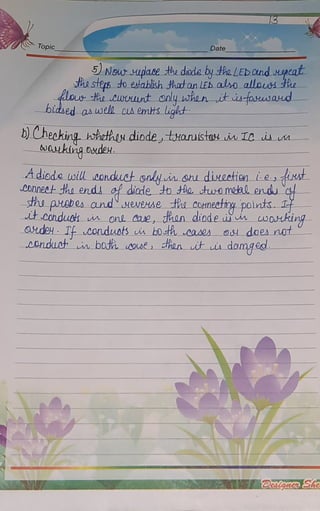 13
Topic Date
5) Now replace the diode by the LED and repeat
the steps to establish that an LED also allows the
flow the current only when it is forward
biased as well as emits light
b) Checking whether diode, transistor in IC is in
working order.
A diode will conduct only in one direction i.e., first
connect the ends of diode to the two metal ends of
the probes and reverse the connecting points. If
it conducts in one case, then diode is in working
order. If conducts in both cases or does not
conduct in both case, then it is damged.
Designer She